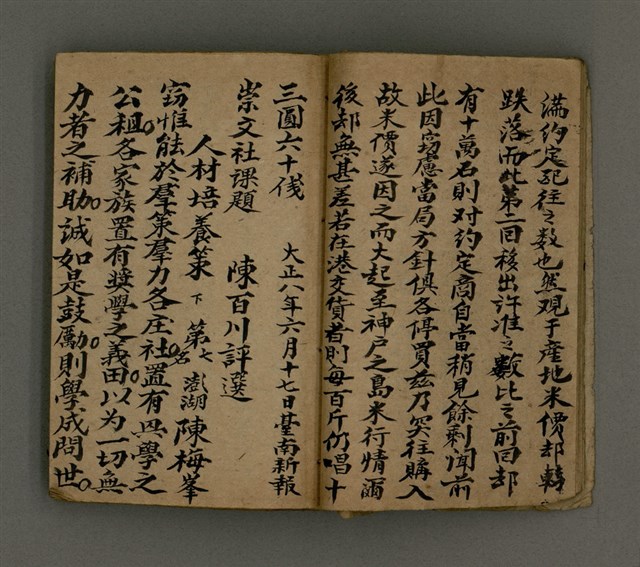 滿約定配往之数也然观于產地米價却轉
跌落而此第二回移出許准之數比之前回却
有十萬石則対約定商自當稍見餘剩闻前
此因窃慮當局方針俱各停買茲乃突往購入
故米價遂因之而大起至神户之島米行情爾
後却無甚差若在港交貨者則每百斤仍唱十
三圓六十伐 大正八年六月十七日臺南新報
崇文社課題 陳百川評選
人材培養策 下 第七名 澎湖 陳梅峯
窃惟能於羣策羣力各庄社置有興學之
公租各家族置有獎學之義田以为一切無
力者之補助誠如是鼓勵則學成問世